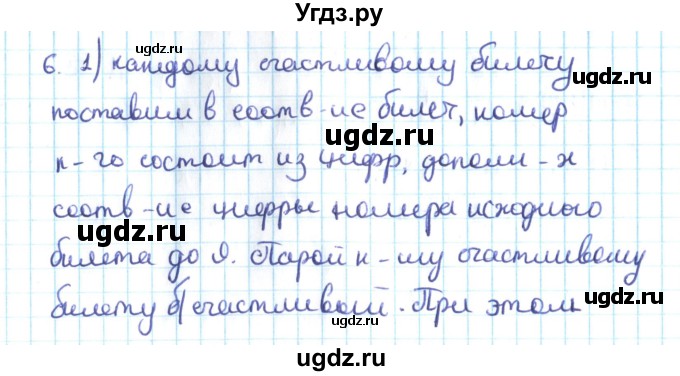 Угдз.ру
6. 1) каждому счастливому билету
поставим в соотв-ие билет, номер
к-го состоит из цифр, дополн-х
соотв-ие цифры номера исходного
билета до 9. Парой к-му счастливому
билету б/ счастливой. При этом
ugdz.ru
ugdz.ru
ugdz.ru
ugdz.ru
ugdz.ru
ugdz.ru
ugdz.ru
ugdz.ru
ugdz.ru